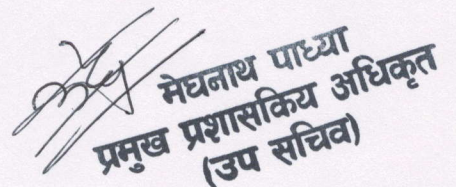 मेघनाथ पाध्या
प्रमुख प्रशासकिय अधिकृत
(उप सचिव)